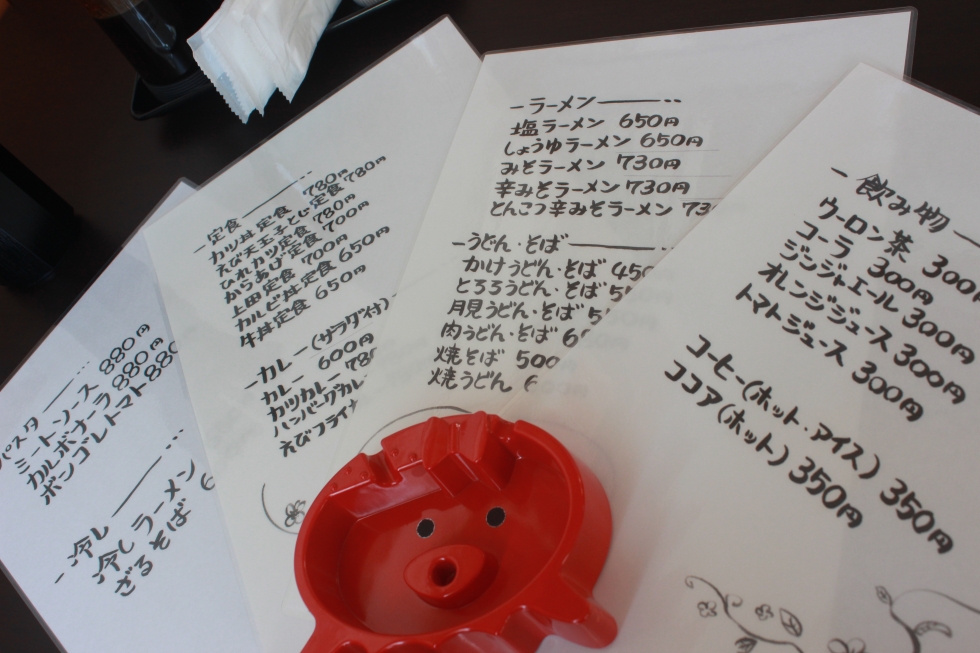 パスタ
ミートソース 880円
カルボナーラ 880円
ボンゴレトマト 880
冷し
冷しラーメン 6
ざるそば
定食
カツ丼定食 780円
えび天玉子とじ定食 780円
ひれカツ定食 780円
からあげ定食 700円
上田定食 700円
カルビ丼定食 650円
牛丼定食 650円
カレー(サラダ付)
カレー 600円
カツカレー 78
ハンバーグカレ
えびフライ
ラーメン
塩ラーメン 650円
しょうゆラーメン 650円
みそラーメン 730円
辛みそラーメン 730円
とんこつ辛みそラーメン 73
うどん・そば
かけうどん・そば 450
とろろうどん・そば 5
月見うどん・そば 5
肉うどん・そば 6
焼そば 500
焼うどん 6
飲み物
ウーロン茶 300円
コーラ 300円
ジンジャエール 300円
オレンジジュース 300円
トマトジュース 300円
コーヒー(ホット・アイス) 350円
ココア(ホット) 350円